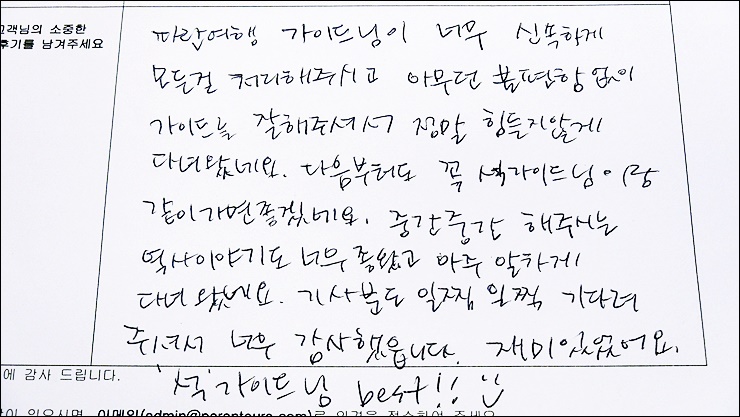 고객님의 소중한
후기를 남겨주세요
파랑여행 가이드님이 너무 신속하게
모든걸 처리해주시고 아무런 불편함 없이
가이드를 잘해주셔서 정말 힘들지않게
다녀왔네요. 다음부터도 꼭 석가이드님이랑
같이가면좋겠네요. 중간중간 해주시는
역사이야기도 너무 좋았고 아주 알차게
다녀왔네요. 기사분도 일찍 일찍 기다려
주셔서 너무 감사했읍니다. 재미있었어요.
에 감사 드립니다.
'석'가이드님 best!!
이 있으시면, 이메일(admin@parantours.com)로 의견을 접수하여 주세요